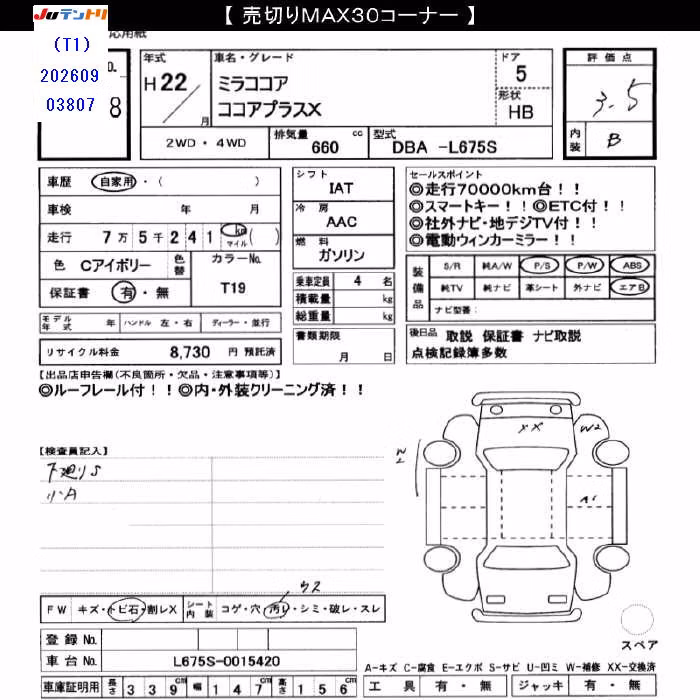 【 売切りMAX30コーナー 】
JUテントリ
応用紙
(T1)
202609
03807
o.
8
年式
H 22
月
車名・グレード
ミラココア
ココアプラスX
ドア
5
形状
HB
2WD・4WD
排気量 660 cc
型式 DBA -L675S
評価点
3.5
内装 B
車歴 自家用・( )
車検 年 月
走行 7万5千241 km マイル ( )
色 Cアイボリー 色替
カラーNo.
T19
保証書 有・無
シフト
IAT
冷房
AAC
燃料
ガソリン
乗車定員 4 名
積載量 kg
総重量 kg
書類期限
月 日
セールスポイント
◎走行70000km台!!
◎スマートキー!!◎ETC付!!
◎社外ナビ・地デジTV付!!
◎電動ウィンカーミラー!!
装備品
S/R 純A/W P/S P/W ABS
純TV 純ナビ 革シート 外ナビ エアB
ナビ型番:
モデル年式 年 ハンドル 左・右 ディーラー・並行
リサイクル料金 8,730 円 預託済
後日品 取説 保証書 ナビ取説
点検記録簿多数
【出品店申告欄(不良箇所・欠品・注意事項等)】
◎ルーフレール付!!◎内・外装クリーニング済!!
【検査員記入】
下廻りS
小A
XX
W2
W2
A1
ウス
FW キズ・トビ石・割レX
シート内装 コゲ・穴・汚レ・シミ・破レ・スレ
登録No.
車台No. L675S-0015420
車庫証明用 長さ 339cm 幅 147cm 高さ 156cm
スペア
A-キズ C-腐食 E-エクボ S-サビ U-凹ミ W-補修 XX-交換済
工具 有・無 ジャッキ 有・無